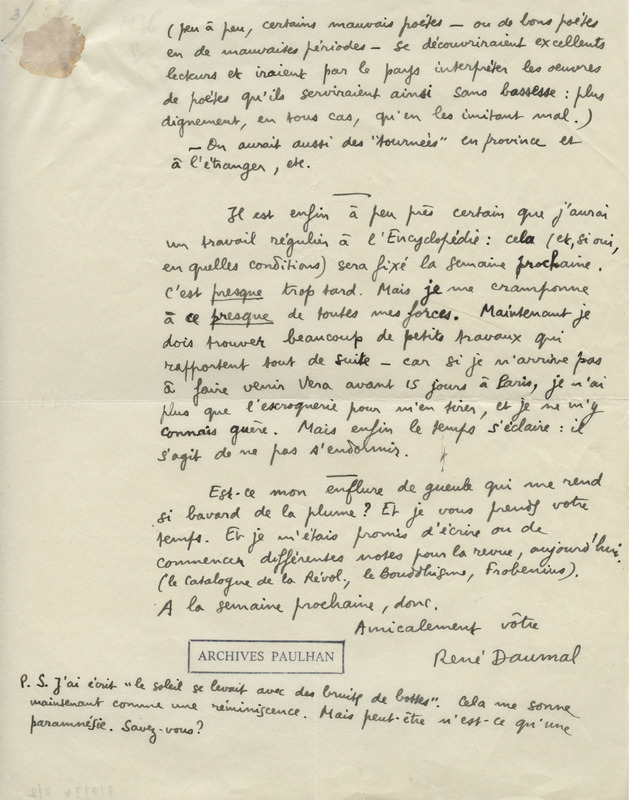 3/
(peu à peu, certains mauvais poètes — ou de bons poètes
en de mauvaises périodes — se découvriraient excellents
lecteurs et iraient par le pays interpréter les œuvres
de poètes qu'ils serviraient ainsi sans bassesse : plus
dignement, en tous cas, qu'en les imitant mal.)
— On aurait aussi des "tournées" en province et
à l'étranger, etc.
Il est enfin à peu près certain que j'aurai
un travail régulier à l'Encyclopédie : cela (et, si oui,
en quelles conditions) sera fixé la semaine prochaine.
C'est presque trop tard. Mais je me cramponne
à ce presque de toutes mes forces. Maintenant je
dois trouver beaucoup de petits travaux qui
rapportent tout de suite — car si je n'arrive pas
à faire venir Vera avant 15 jours à Paris, je n'ai
plus que l'escroquerie pour m'en tirer, et je ne m'y
connais guère. Mais enfin le temps s'éclaire : il
s'agit de ne pas s'endormir.
Est-ce mon enflure de gueule qui me rend
si bavard de la plume ? Et je vous prends votre
temps. Et je m'étais promis d'écrire ou de
commencer différentes notes pour la revue, aujourd'hui.
(le Catalogue de la Révol., le Bouddhisme, Frobenius).
A la semaine prochaine, donc.
Amicalement vôtre
René Daumal
ARCHIVES PAULHAN
P. S. J'ai écrit "le soleil se levait avec des bruits de bottes". Cela me sonne
maintenant comme une réminiscence. Mais peut-être n'est-ce qu'une
paramnésie. Savez-vous ?